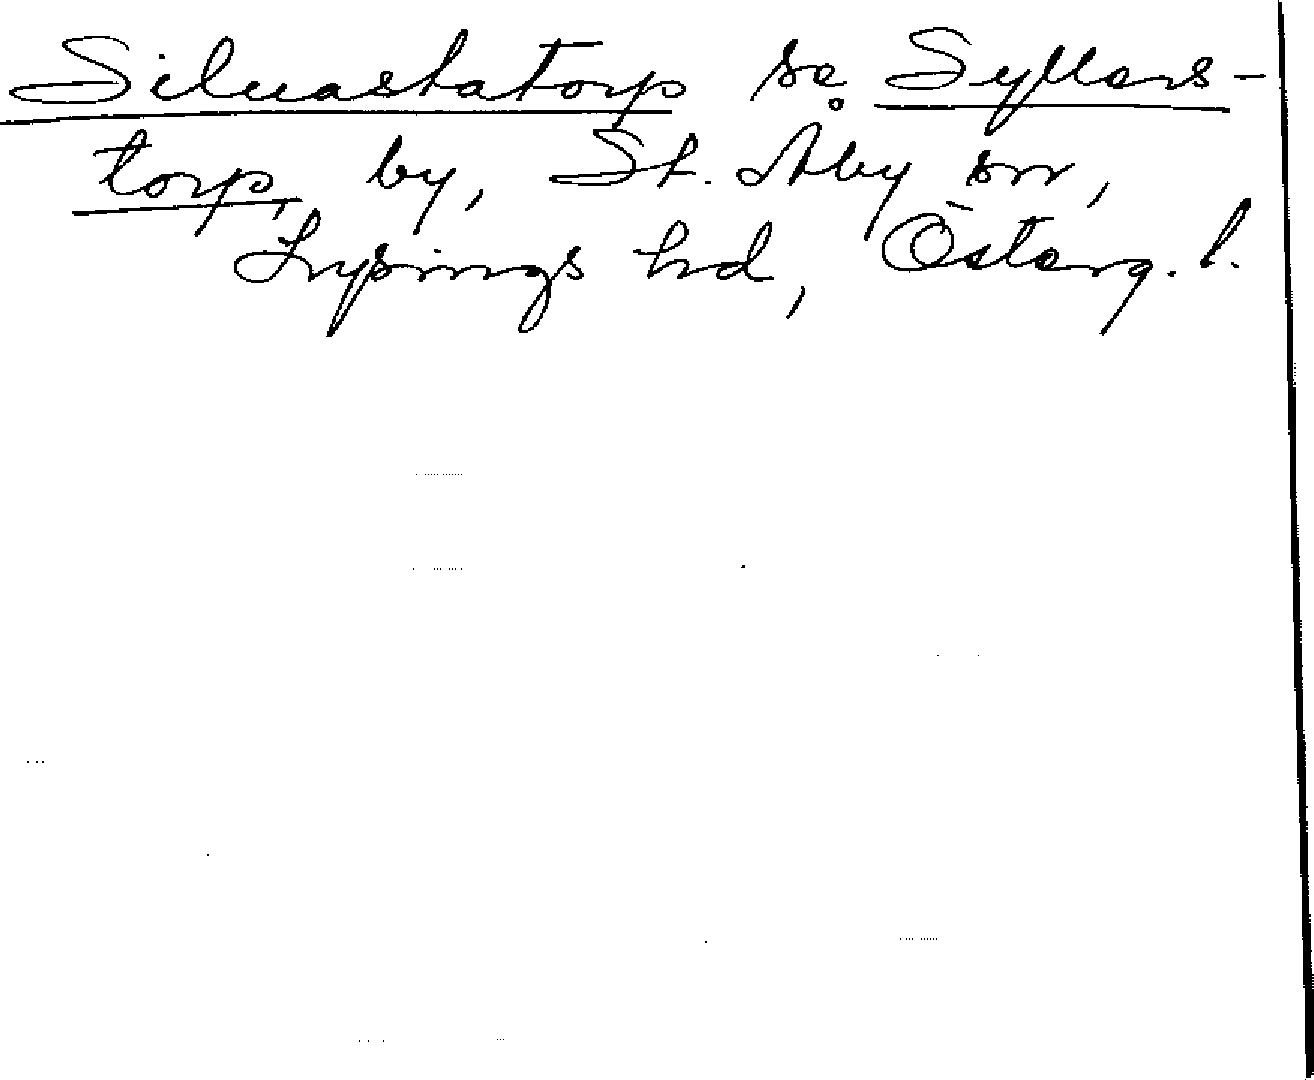 Siluastatorp se Syllers-
torp, by, St. Åby sn,
Lysings hd, Österg. l.